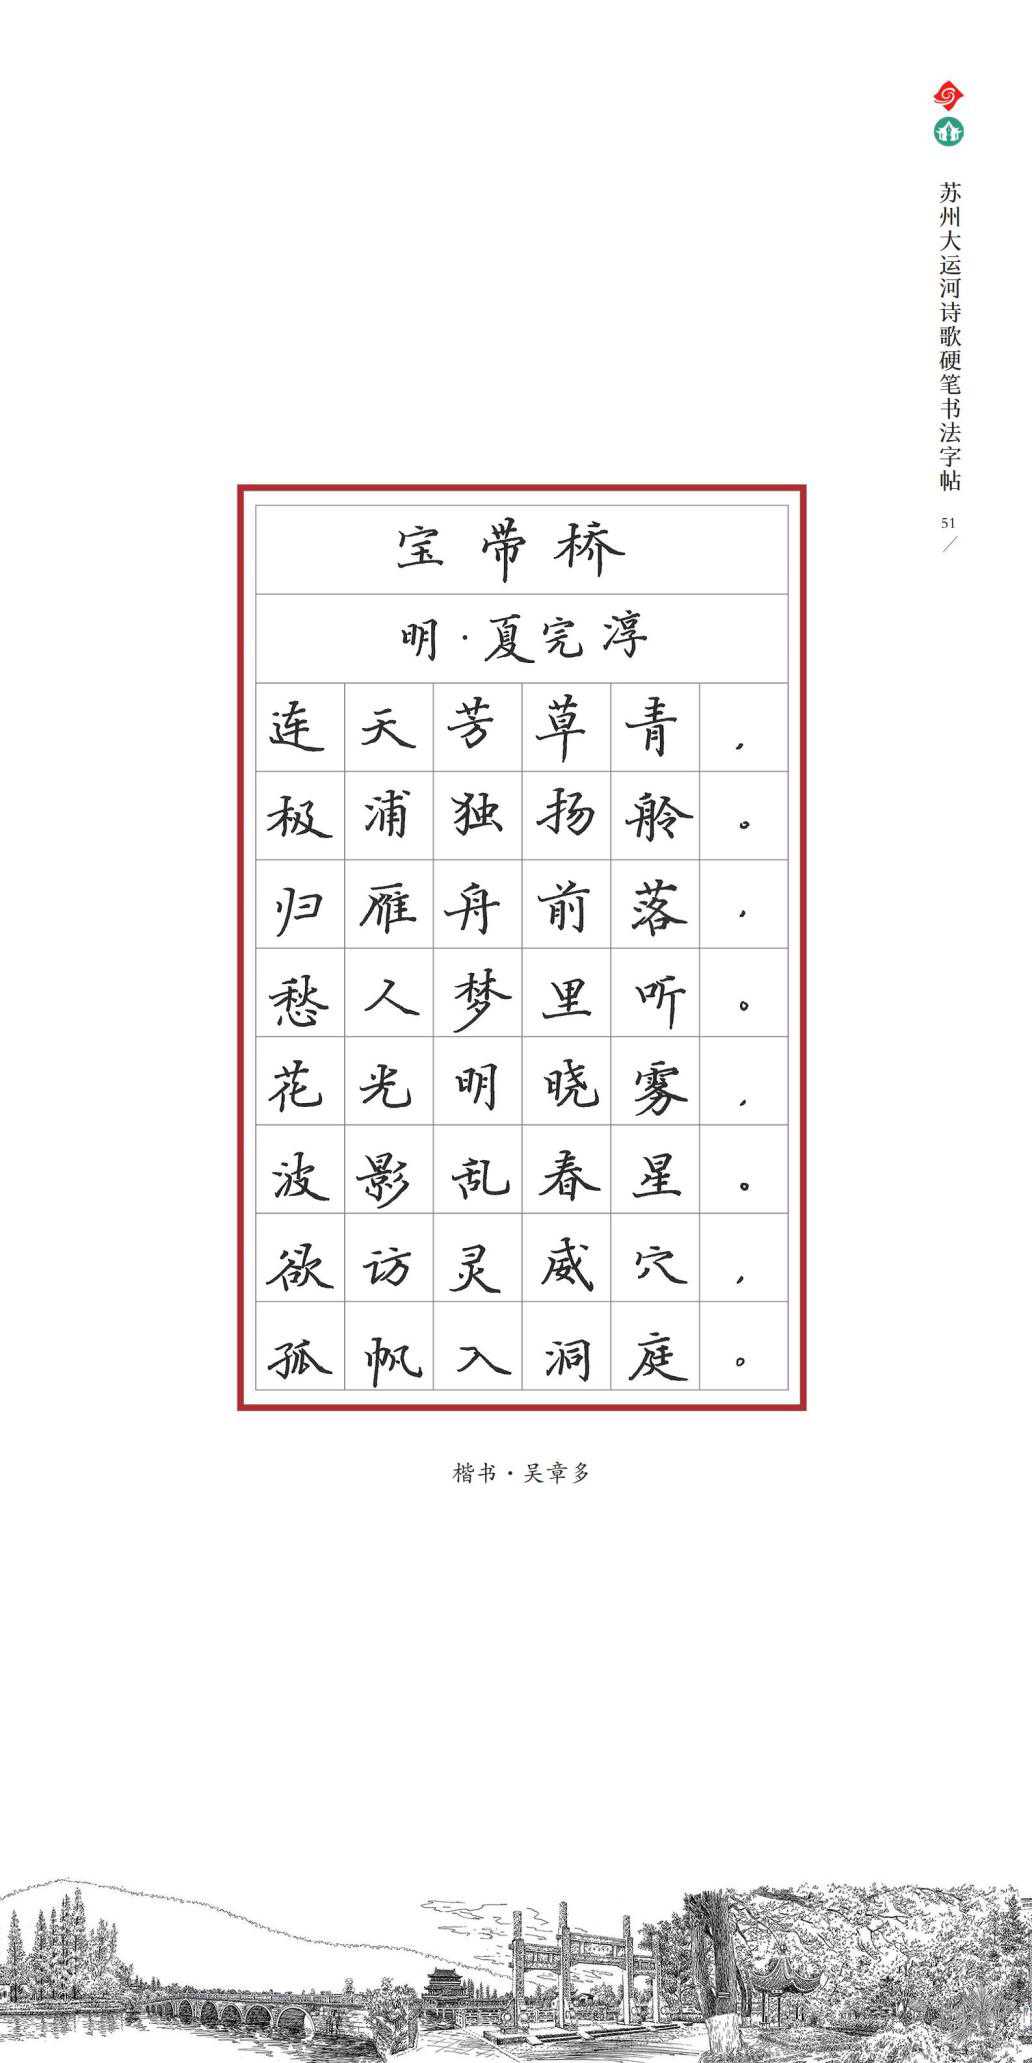 苏州大运河诗歌硬笔书法字帖
51
宝带桥
明·夏完淳
连天芳草青，
极浦独扬舲。
归雁舟前落，
愁人梦里听。
花光明晓雾，
波影乱春星。
欲访灵威穴，
孤帆入洞庭。
楷书·吴章多